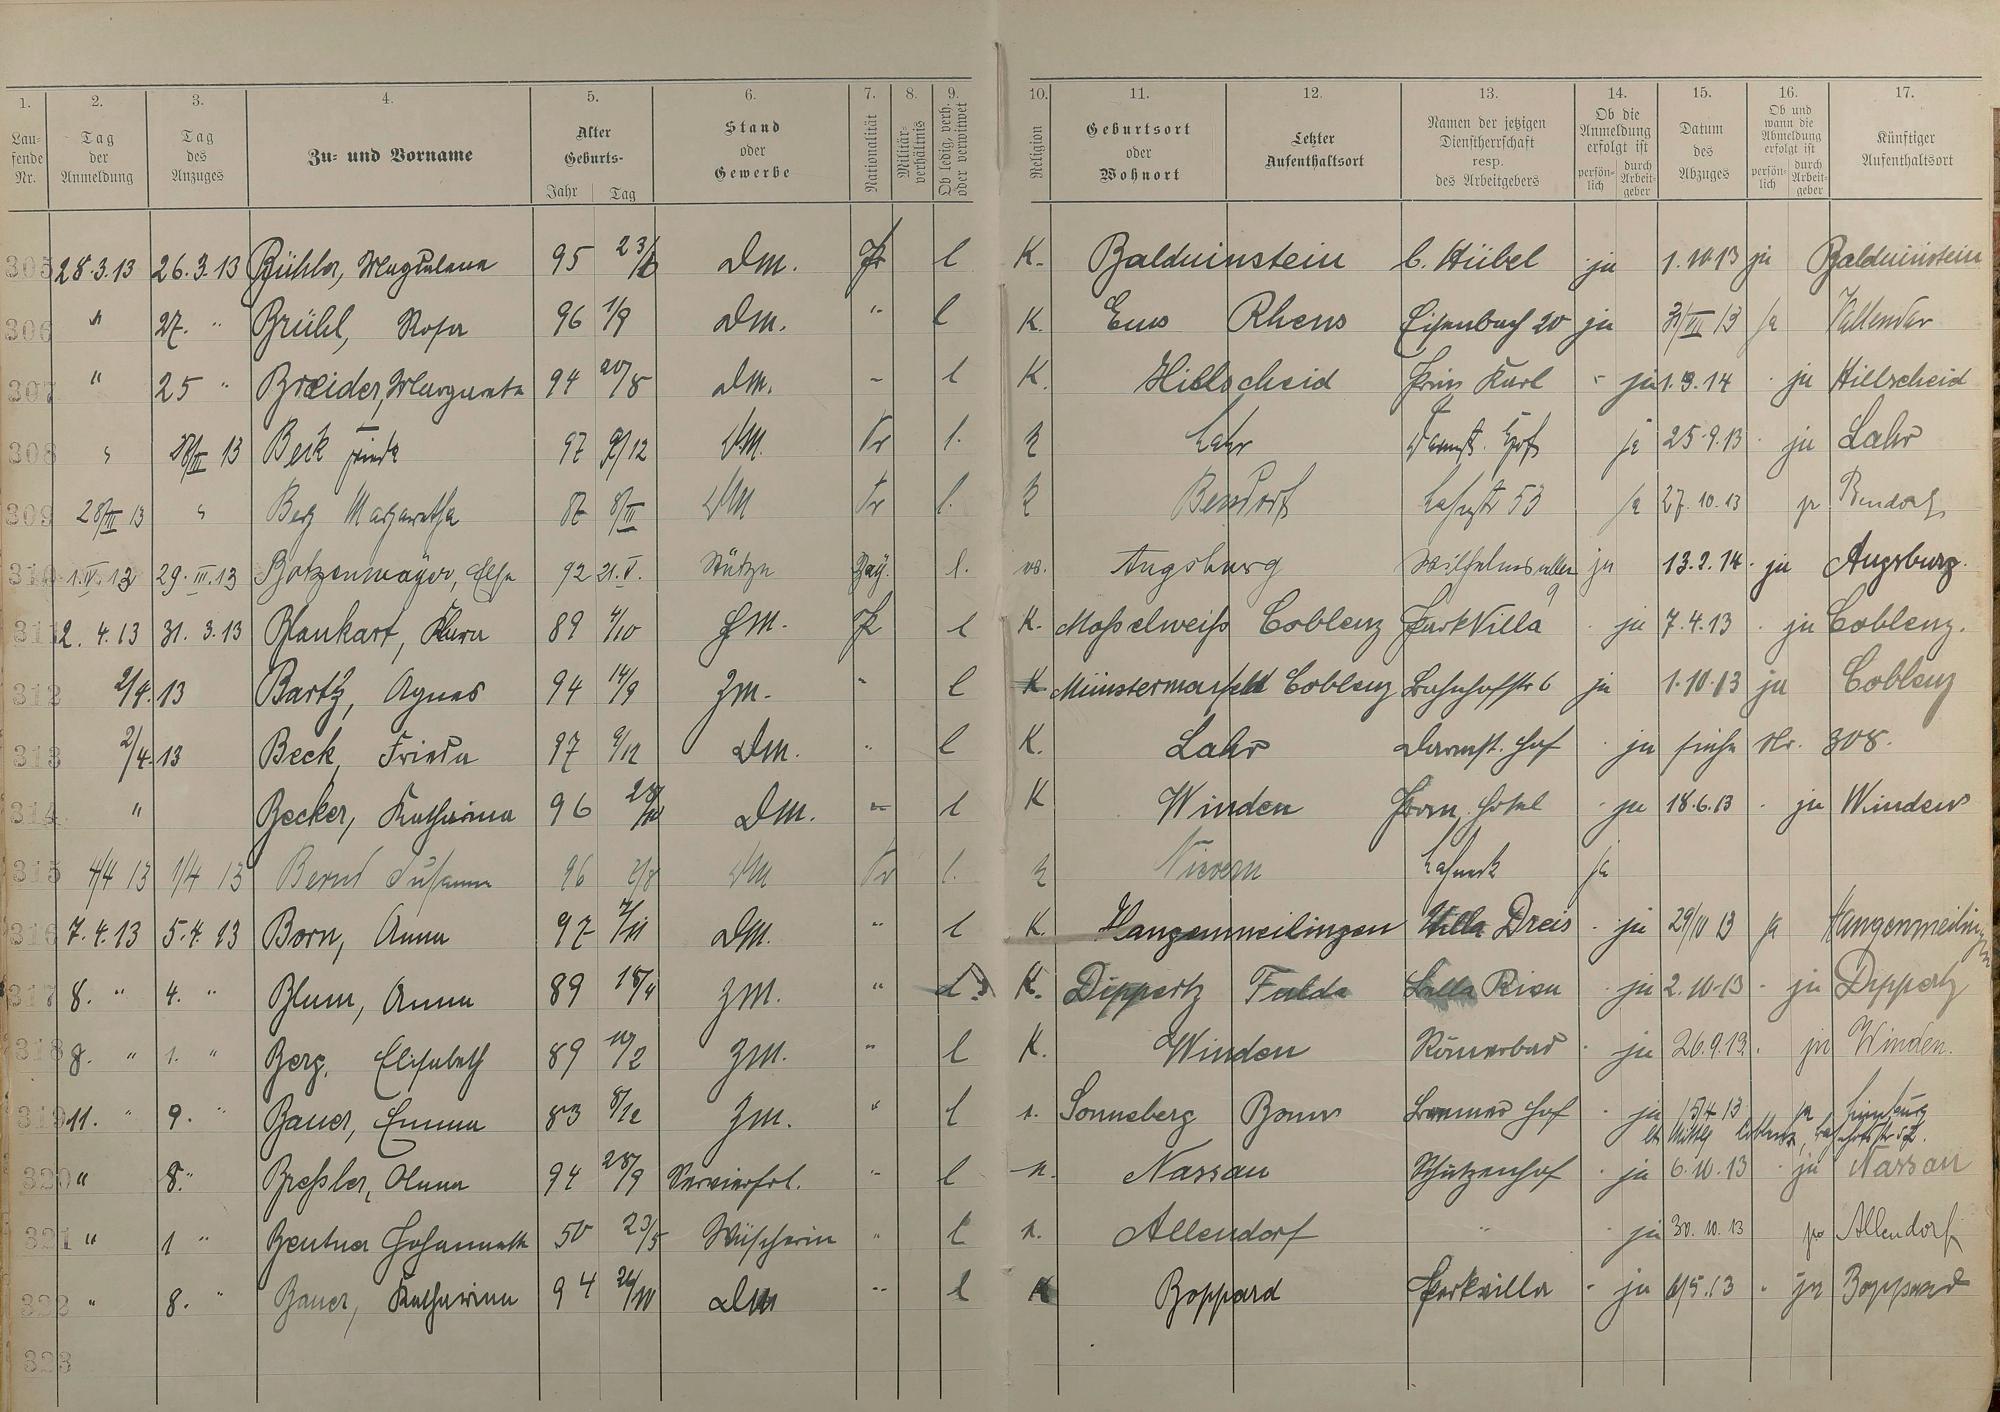 1. 2. 3. 4. 5. 6. 7. 8. 9. 10. 11. 12. 13. 14. 15. 16. 17.
Laufende Nr. Tag der Anmeldung Tag des Anzuges Zu- und Vorname Alter Geburts- Jahr Tag Stand oder Gewerbe Nationalität Militärverhältnis Ob ledig, verh. oder verwitwet Religion Geburtsort oder Wohnort Letzter Aufenthaltsort Namen der jetzigen Dienstherrschaft resp. des Arbeitgebers Ob die Anmeldung erfolgt ist persönlich durch Arbeitgeber Datum des Abzuges Ob und wann die Abmeldung erfolgt ist persönlich durch Arbeitgeber Künftiger Aufenthaltsort
305 28.3.13 26.3.13 Bühler, Magdalena 95 Dm. Pr l K. Balduinstein C. Hübel ja 1.10.13 ja Balduinstein
306 " 27. " Brühl, Rosa 96 1/9 Dm. " l K. Ems Rhens Eisenbach 20 ja 31/VII 13 ja Vallendar
307 " 25 " Breider, Margareta 94 20/8 Dm. " l K. Hillscheid Prin Karl - ja 1.9.14 - ja Hillscheid
308 " 28/III 13 Beck Frieda 97 9/12 DM. Pr l. K Lahr Darmst. Hof ja 25.9.13 - ja Lahr
309 28/III 13 " Berg Margaretha 87 8/III DM Pr l. K Bendorf Lahnstr 53 ja 27.10.13 ja Bendorf
310 1.IV.13 29.III.13 Botzenmayer, Else 92 21.V. Stütze Bay. l. Augsburg Wilhelmsallee 9 ja 13.2.14 - ja Augsburg.
311 2.4.13 31.3.13 Blankart, Klara 89 4/10 Pr l K. Moßelweiß Coblenz Park Villa - ja 7.4.13 - ja Coblenz.
312 2/4.13 Bartz, Agnes 94 14/9 Zm. " l K Münstermaifeld Coblenz Bahnhofstr 6 ja 1.10.13 ja Coblenz
313 2/4.13 Beck, Frieda 97 9/12 Dm. " l K. Lahr Darmst. Hof - ja siehe Nr. 308.
314 " Becker, Katharina 96 Dm. " l K Winden Hotel - ja 18.6.13 - ja Winden
315 4/4 13 1/4 13 Bernd Susanna 96 2/8 DM Pr l. K Nievern Lahneck ja
316 7.4.13 5.4.13 Born, Anna 97 7/11 Dm. " l K. Hangenmeilingen Villa Dreis - ja 29/IV 13 ja Hangenmeilingen
317 8. " 4. " Blum, Anna 89 18/4 Zm. " K. Dippertz Fulda Bella Riva - ja 2.10.13 - ja Dippertz
318 8. " 1. " Berg, Elisabeth 89 10/2 Zm. " l K. Winden Römerbad - ja 26.9.13. ja Winden.
319 11. " 9. " Bauer, Emma 83 8/12 Zm. " l Sonneberg Bonn Bremer Hof - ja 15/4 13 ja Limburg
lt. Mittlg Coblenz, Bahnhofstr 52.
320 " 8. " Breßler, Anna 94 28/9 Servierfrl. " l Nassau Schützenhof - ja 6.10.13 - ja Nassau
321 " 1 " Bentner Johannette 50 23/5 Wäscherin " l Allendorf " - ja 30.10.13 ja Allendorf
322 " 8. " Bauer, Katharina 94 26/10 Dm " l K Boppard Parkvilla - ja 6/5.13 - ja Boppard
323